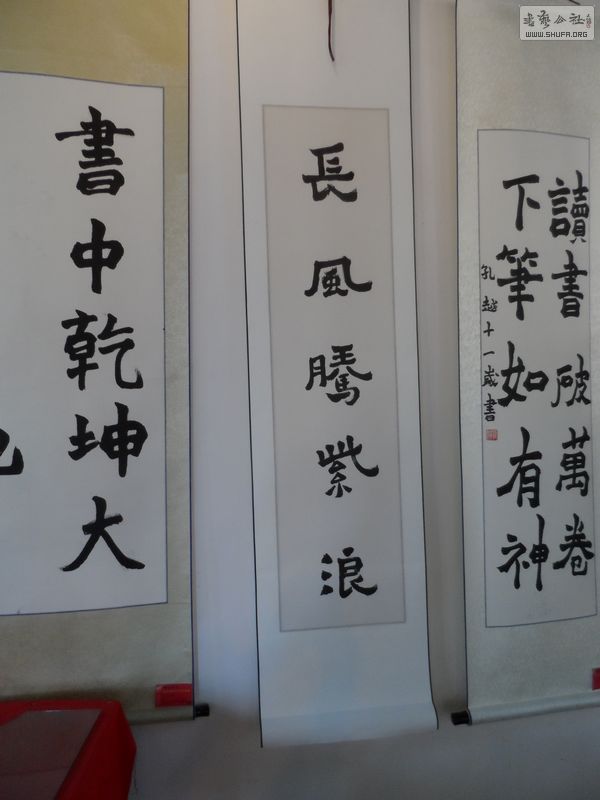 讀書破萬卷
下筆如有神
孔越十一歲書
長風騰紫浪
書中乾坤大
書藝公社
WWW.SHUFA.ORG